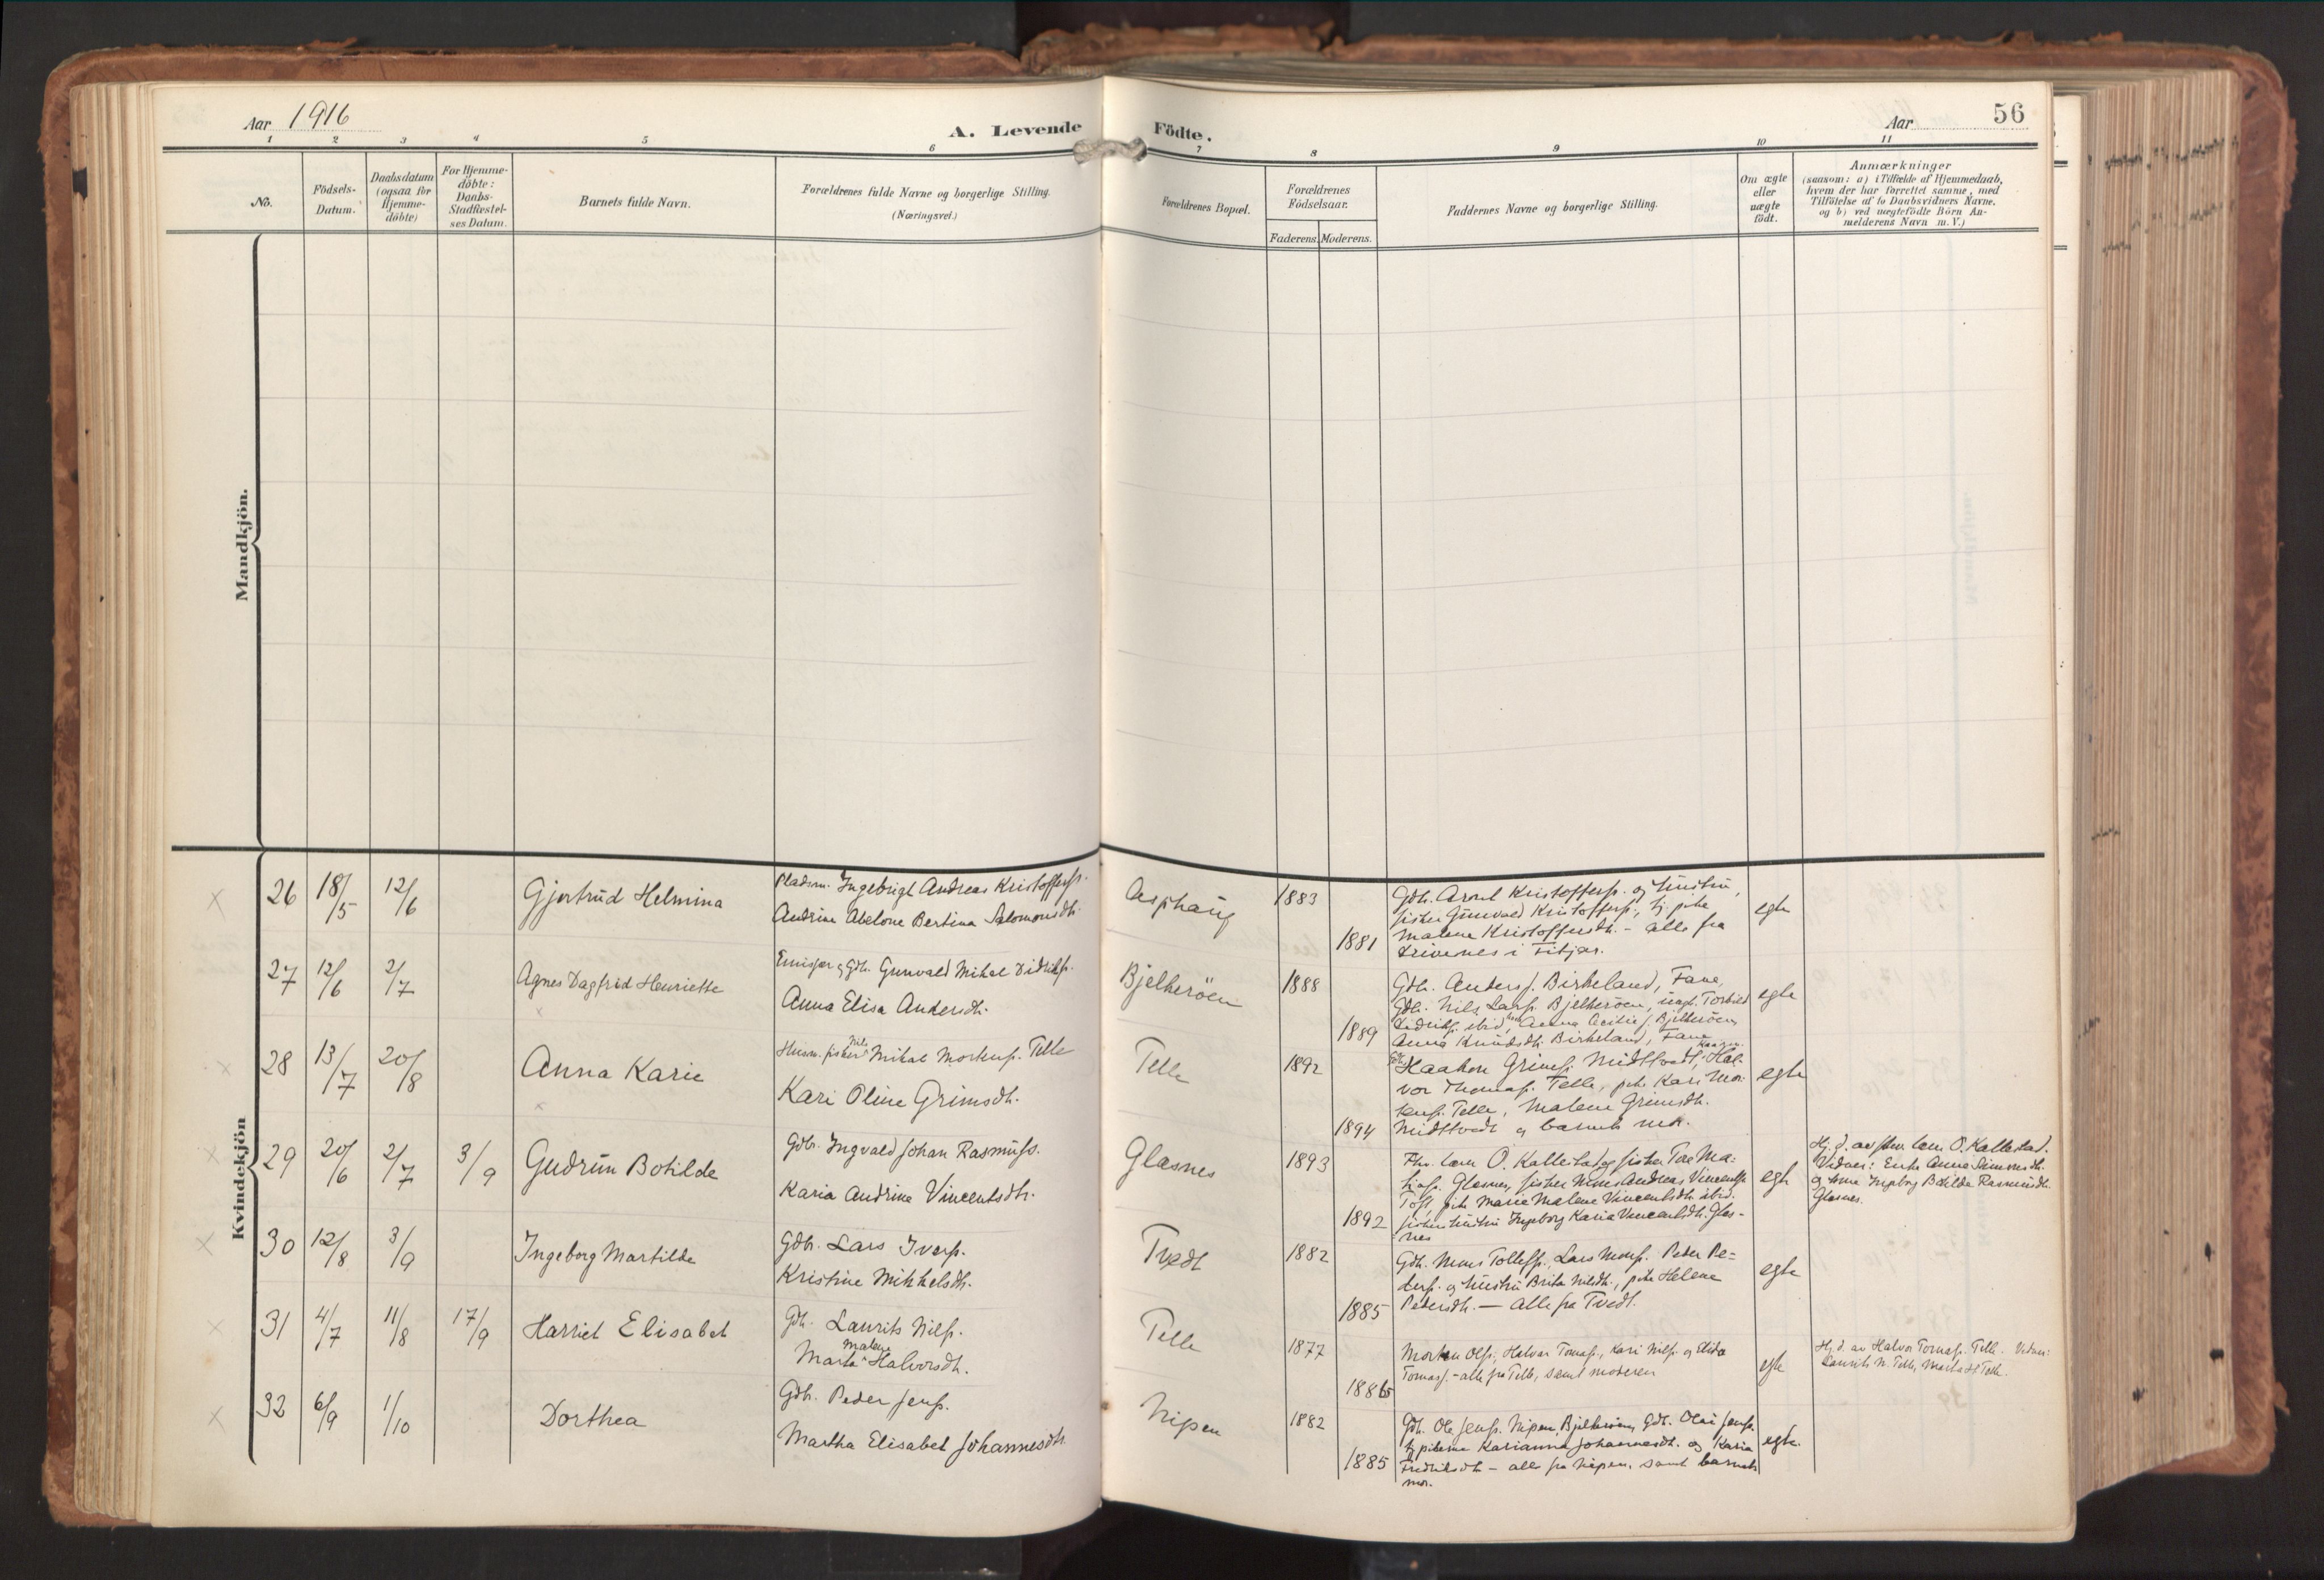 56
Aar 1916
A. Levende
Födte.
Aar
1 2 3 4 5 6 7 8 9 10 11
No.
Födsels-
Datum.
Daabsdatum
(ogsaa for
Hjemme-
döbte)
For Hjemme-
döbte:
Daabs-
Stadfæstel-
ses Datum.
Barnets fulde Navn.
Forældrenes fulde Navne og borgerlige Stilling.
(Næringsvei.)
Forældrenes Bopæl.
Forældrenes
Födselsaar.
Faderens. Moderens.
Faddernes Navne og borgerlige Stilling.
Om ægte
eller
uægte
födt.
Anmærkninger
(saasom: a) i Tilfælde af Hjemmedaab,
hvem der har forrettet samme, med
Tilföielse af to Daabsvidners Navne.
og b) ved uægtefödte Börn An-
melderens Navn m. V.)
Mandkjön.
Kvindekjön
26 18/5 12/6
Gjertrud Helmina
Pladsm. Ingebrigt Andreas Kristoffers.
Andrine Abelone Bertina Salomonsdtr.
Asphaug
1883
1881
Gbr. Arout Kristoffers. og hustru,
fisker Gunvald Kristoffers., tj. pike
Malene Kristoffersdtr. - alle fra
i Fitjar.
egte
27 12/6 2/7
Agnes Dagfrid Henriette
Emisær og Gbr. Gunvald Mikal Didriks.
Anna Elisa Andersdtr.
Bjelkeröen
1888
1889
Gbr. Anders J. Birkeland, Fane,
Gbr. Nils Lars. Bjelkeröen, ungk. Torbiel
Didriks. ibid, Anna Cecilie J. Bjelkeröen,
Anna Knudsdtr. Birkeland, Fane
egte
28 13/7 20/8
Anna Karie
Husm. fisker Nils Mikal Mortens. Telle
Kari Oline Grimsdtr.
Telle
1892
1894
Gbr. Haakon Grims. Midttvedt, Haagen. Hal-
vor Thomas. Telle, pike Kari Mor-
tens. Telle, Malene Grimsdtr.
Midttvedt og barnets mor.
egte
29 20/6 2/7 3/9
Gudrun Botilde
Gbr. Ingvald Johan Rasmuss.
Karia Andrine Vincentsdtr.
Glesnes
1893
1892
Fhv. lærer O. Kallestad og fisker Tor Ma-
tias. Glesnes, fisker Mons Andreas Vincents.
Toft, pike Marie Malene Vincentsdtr. ibid.
fisker hustru Ingeborg Karia Vincentsdtr. Gles-
nes
egte
Hj. d. av fhv. lærer O. Kallestad.
Vidner: Enke Anna Simonsdtr.
og kone Ingeborg Botilda Rasmusdtr.
Glesnes.
30 12/8 3/9
Ingeborg Martilde
Gbr. Lars Ivers.
Kristine Mikkelsdtr.
Tvedt
1882
1885
Gbr. Mons Tollefs., Lars Mons. Peder Pe-
ders. og hustru Brita Nilsdtr., pike Helene
Pedersdtr. — Alle fra Tvedt.
egte
31 4/7 11/8 17/9
Harriet Elisabet
Gbr. Laurits Nils.
Marta Malene Halvorsdtr.
Telle
1877
1886
Morten Ols., Halvor Tomas., Kari Nils. og Elida
Tomas. - alle fra Telle, samt moderen
egte
Hj. d. av Halvor Tomas. Telle. Vidner:
Laurits N. Telle, Marta H. Telle.
32 6/9 1/10
Dorthea
Gbr. Peder Jens.
Martha Elisabet Johannesdtr.
Nipen
1882
1885
Gbr. Ole Jens. Nipen, Bjelkeröen, Gbr. Olai Jens.
tj. pikerne Karianna Johannesdtr. og Karia
Fredriksdtr - alle fra Nipen, samt barnets
mor.
egte.